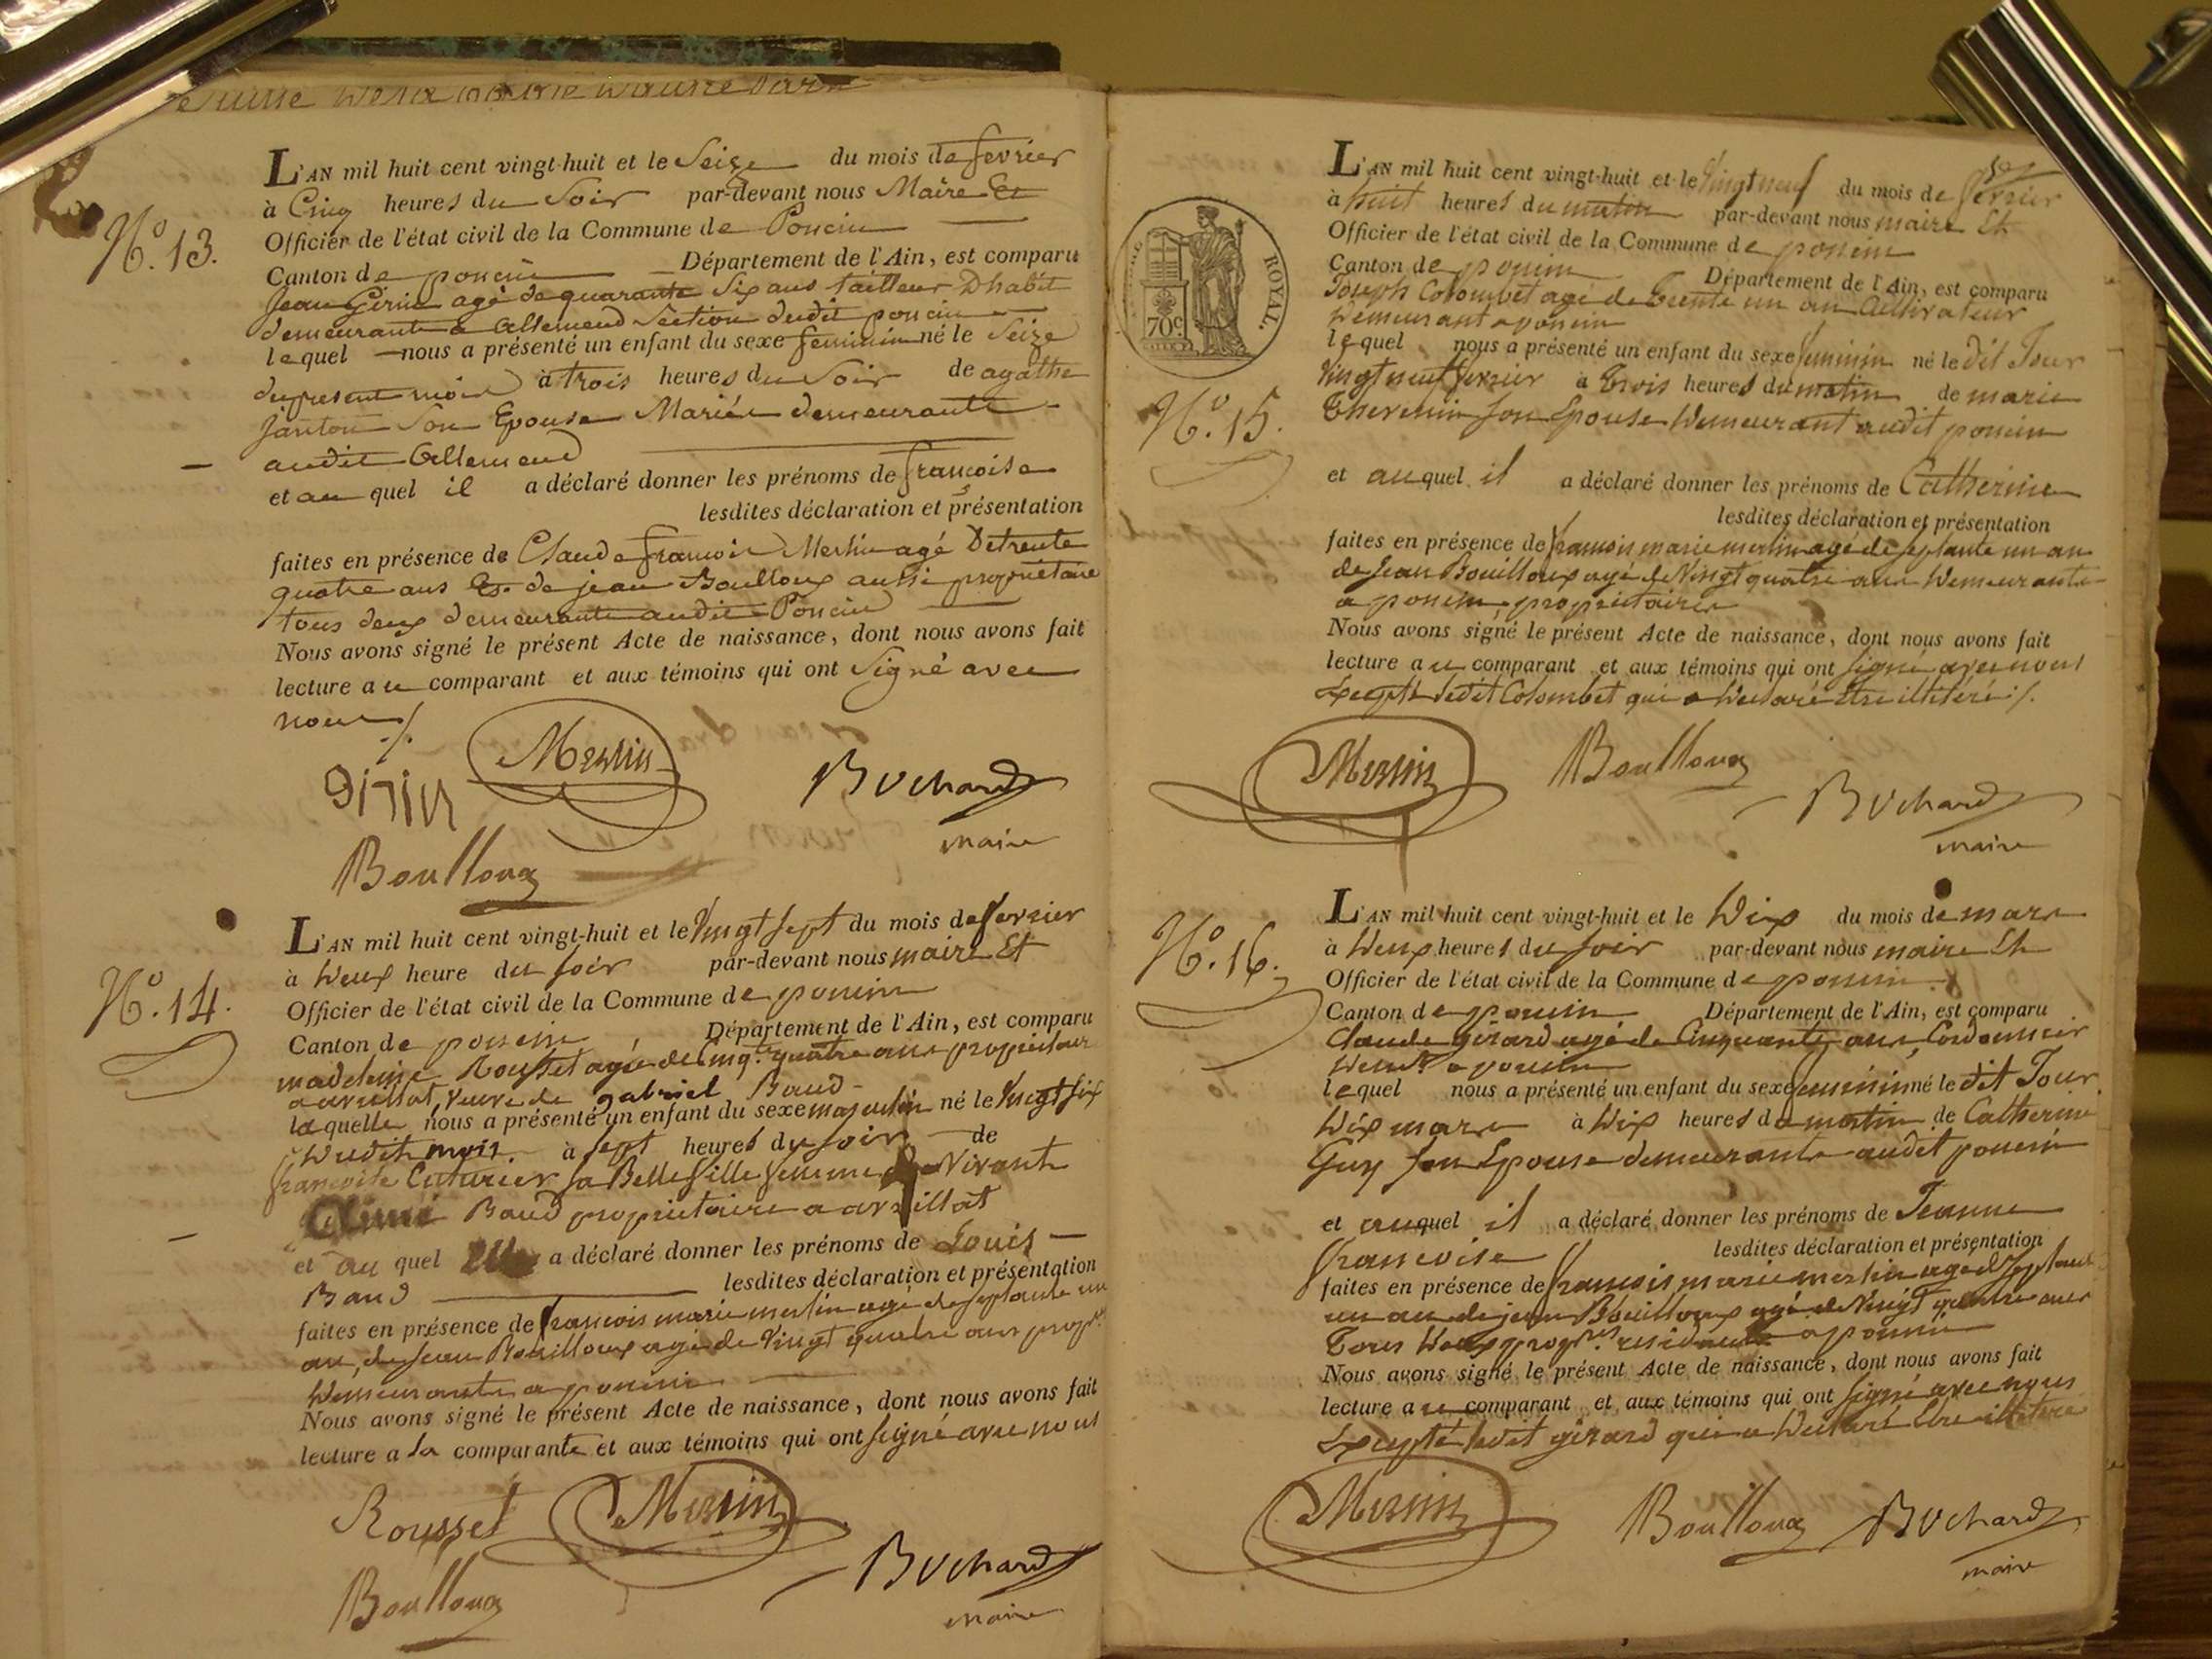 N.o 13.
L'AN mil huit cent vingt-huit et le Seize du mois de fevrier
à Cinq heures du Soir par-devant nous Maire Et
Officier de l'état civil de la Commune de Poncin
Canton de poncin Département de l'Ain, est comparu
Jean Girin agé de quarante Six ans tailleur Dhabit
demeurante a Allemend Section dudit poncin
lequel nous a présenté un enfant du sexe feminin né le Seize
du present mois à trois heures du Soir de agathe
Janton Son Epouse Mariée demeurante
audit Allemend
et au quel il a déclaré donner les prénoms de francoise
lesdites déclaration et présentation
faites en présence de Claude francois Merlin agé Detrente
quatre ans Et de jean Boulloux aussi propriétaire
tous deux demeurante audit Poncin
Nous avons signé le présent Acte de naissance, dont nous avons fait
lecture au comparant et aux témoins qui ont Signé avec
nous ./.
Merlin
Buchard
maire
Boulloux
N.o 14.
L'AN mil huit cent vingt-huit et le Vingt sept du mois de fevrier
à Deux heure du soir par-devant nous maire Et
Officier de l'état civil de la Commune de poncin
Canton de poncin Département de l'Ain, est comparu
madeleine Rousset agée de Cinq.te quatre ans propriétair
a arvillat, veuve de gabriel Baud
laquelle nous a présenté un enfant du sexe masculin né le Vingt six
Dudit mois à sept heures du soir de
francoise Cuturier sa Belle fille femme Vivante
Baud propriétaire a arvillat
et au quel Elle a déclaré donner les prénoms de Louis
Baud lesdites déclaration et présentation
faites en présence de francois marie merlin agé de septante un
an, de Jean Boulloux agé de Vingt quatre ans prop.res
Demeurante a poncin
Nous avons signé le présent Acte de naissance, dont nous avons fait
lecture a la comparante et aux témoins qui ont signé avec nous
Rousset
Merlin
Buchard
maire
Boulloux
ROYAL.
70c.
N.o 15.
L'AN mil huit cent vingt-huit et le Vingt neuf du mois de fevrier
à huit heures du matin par-devant nous maire Et
Officier de l'état civil de la Commune de poncin
Canton de poncin Département de l'Ain, est comparu
Joseph Colombet agé de Trente un an Cultivateur
Demeurant a poncin
lequel nous a présenté un enfant du sexe feminin né le dit Jour
Vingt neuf fevrier à Trois heures du matin de marie
Thevenin son Epouse Demeurant audit poncin
et auquel il a déclaré donner les prénoms de Catherine
lesdites déclaration et présentation
faites en présence de francois marie merlin agé de septante un an
de Jean Bouilloux agé de Vingt quatre ans Demeurante
a poncin, propriétaires
Nous avons signé le présent Acte de naissance, dont nous avons fait
lecture au comparant et aux témoins qui ont signé avec nous
Excepté ledit Colombet qui a Declaré être illitéré ./.
Merlin
Boulloux
Buchard
maire
N.o 16.
L'AN mil huit cent vingt-huit et le Dix du mois de mars
à Deux heures du soir par-devant nous maire Et
Officier de l'état civil de la Commune de poncin
Canton de poncin Département de l'Ain, est comparu
Claude girard agé de Cinquante ans Cordonnier
Demt. a poncin
lequel nous a présenté un enfant du sexe feminin né le dit Jour
Dix mars à Dix heures du matin de Catherine
Guy son Epouse demeurante audit poncin
et auquel il a déclaré donner les prénoms de Jeanne
francoise lesdites déclaration et présentation
faites en présence de francois marie merlin agé de septante
un an de jean Bouilloux agé de Vingt quatre ans
Tous Deux prop.res residante a poncin
Nous avons signé le présent Acte de naissance, dont nous avons fait
lecture au comparant et aux témoins qui ont signé avec nous
Excepté ledit girard qui a Declaré Etre illitéré
Merlin
Boulloux
Buchard
maire